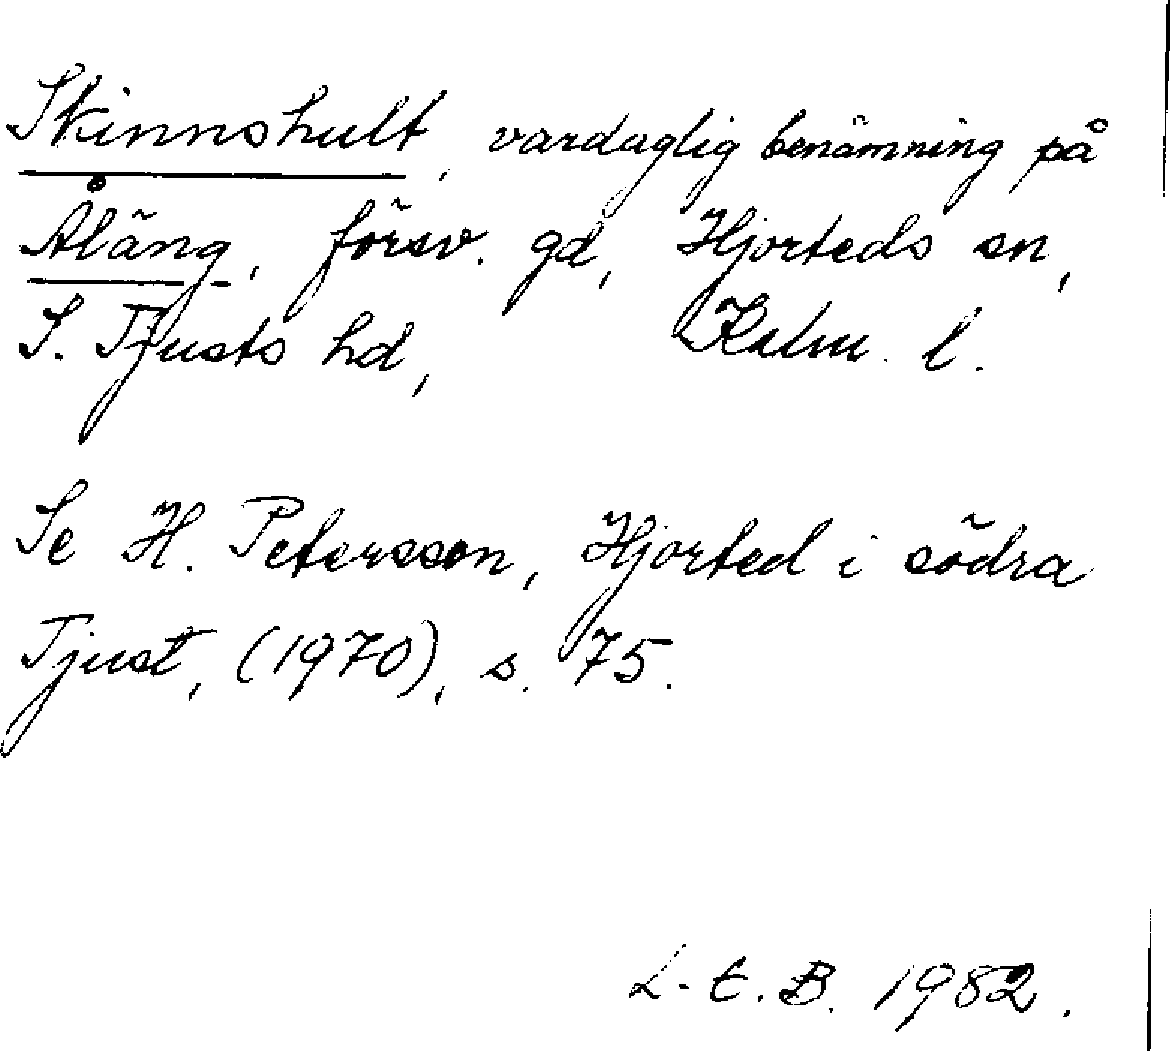 Skinnshult, vardaglig benämning på
Åläng, försv. gd, Hjorteds sn,
S. Tjusts hd, Kalm. l.
Se H. Petersson, Hjorted i södra
Tjust, (1970), s. 75.
L-E. B. 1982.